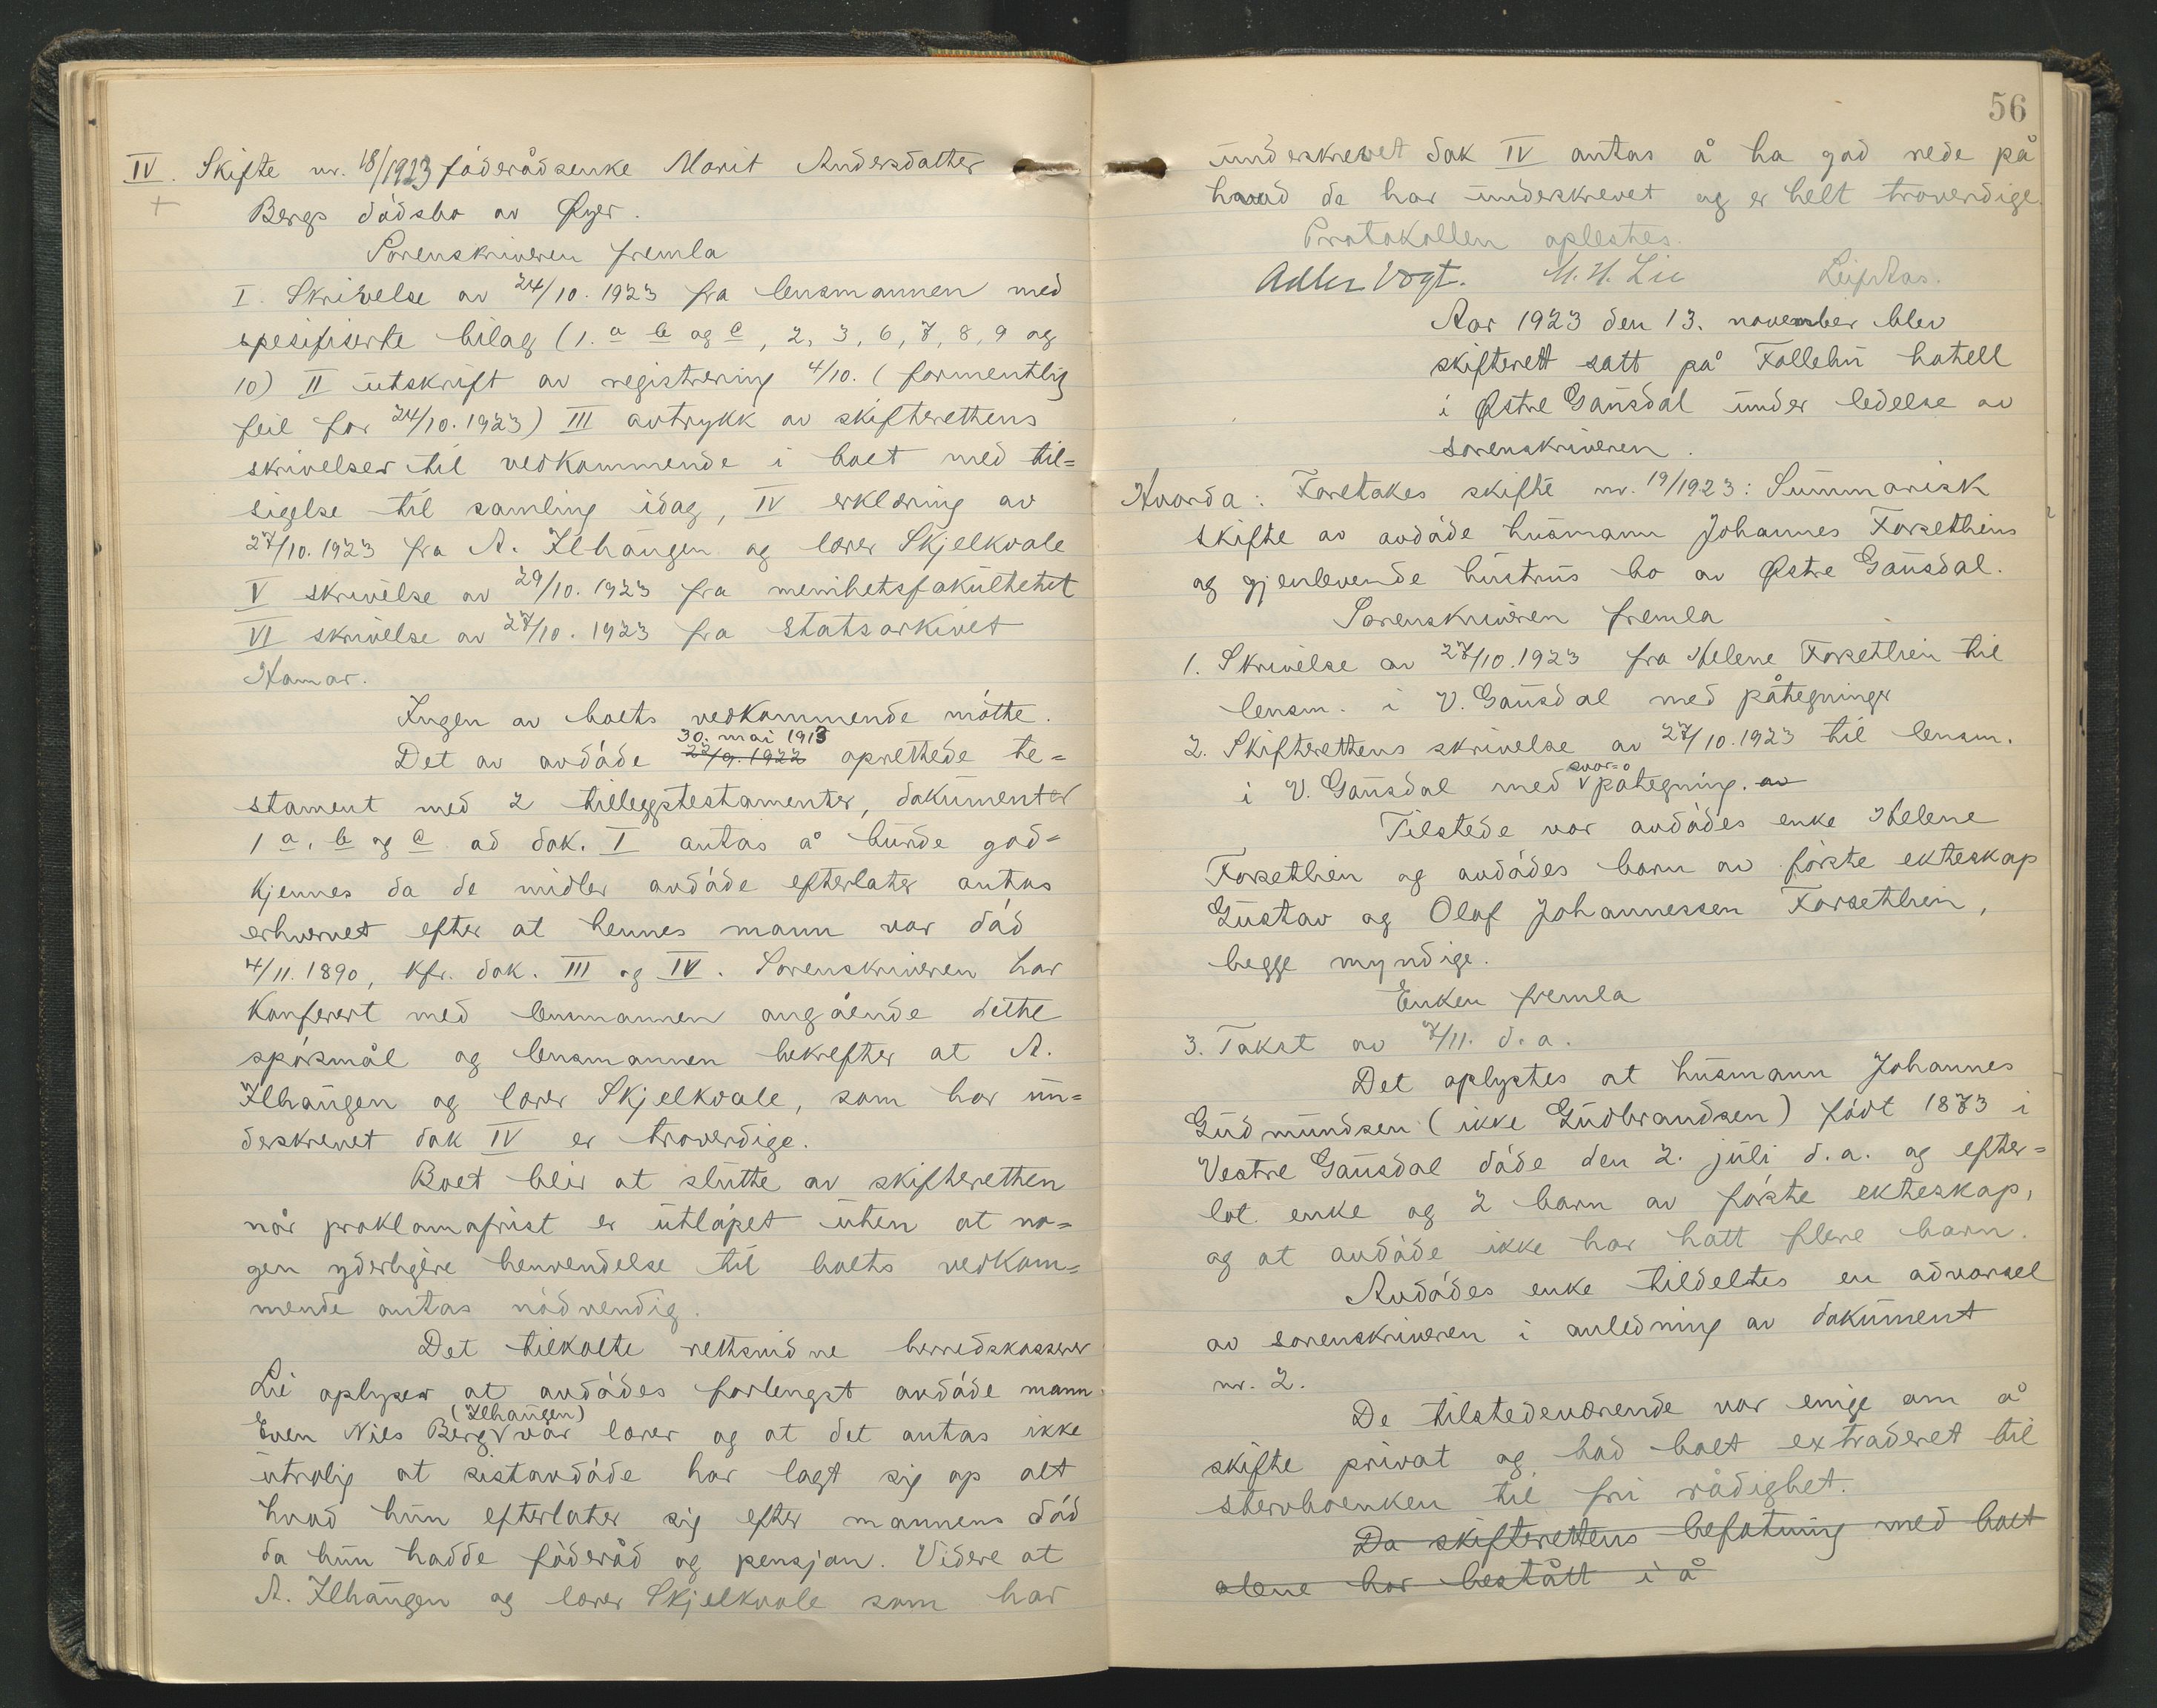 IV. Skifte nr. 18/1923 föderådsenke Marit Andersdatter
+ Bergs dödsbo av Øyer.
Sorenskriveren fremla
I. Skrivelse av 24/10. 1923 fra lensmannen med
spesifiserte bilag (1. a b og c, 2, 3, 6, 7, 8, 9 og
10) II utskrift av registrering 4/10. (formentlig
feil for 24/10. 1923) III avtrykk av skifterettens
skrivelser til vedkommende i boet med til=
sigelse til samling idag, IV erklæring av
27/10. 1923 fra A. Ilhaugen og lærer Skjelkvale
V skrivelse av 29/10. 1923 fra menihetsfakultetet
VI skrivelse av 27/10. 1923 fra Statsarkivet
Hamar.
Ingen av boets vedkommende mötte.
30. mai 1913
Det av avdöde 22/9. 1922 oprettede te=
stament med 2 tilleggstestamenter, dokumenter
1 a, b og c ad dok. I antas å burde god=
kjennes da de midler avdöde efterlater antas
erhvervet efter at hennes mann var död
4/11. 1890, kfr. dok. III og IV. Sorenskriveren har
konferert med lensmannen angående dette
spörsmål og lensmannen bekrefter at A.
Ilhaugen og lærer Skjelkvale, som har un=
derskrevet dok IV er troverdige.
Boet blir at slutte av skifteretten
når proklamafrist er utlöpet uten at no=
gen yderligere henvendelse til boets vedkom=
mende antas nödvendig.
Det tilkalte rettsvidne herredskasserer
Lie oplyser at avdödes forlengst avdöde mann
(Ilhaugen)
Even Nils Berg var lærer og at det antas ikke
utrolig at sistavdöde har lagt sig op alt
hvad hun efterlater sig efter mannens död
da hun hadde föderåd og pensjon. Videre at
A. Ilhaugen og lærer Skjelkvale som har
56
underskrevet dok IV antas å ha god rede på
hvad de har underskrevet og er helt troverdige.
Protokollen oplestes.
Adler Vogt. M. H. Lie Leif Aas.
Aar 1923 den 13. november blev
skifterett satt på Follebu hotell
i Østre Gausdal under ledelse av
sorenskriveren.
Hvorda: Foretakes skifte nr. 19/1923: Summarisk
skifte av avdöde husmann Johannes Forsethliens
og gjenlevende hustrus bo av Østre Gausdal.
Sorenskriveren fremla
1. Skrivelse av 27/10. 1923 fra Helene Forsetlien til
lensm. i V. Gausdal med påtegninger
2. Skifterettens skrivelse av 27/10. 1923 til lensm.
svar=
i V. Gausdal med påtegning. av
Tilstede var avdödes enke Helene
Forsetlien og avdödes barn av förste ekteskap
Gustav og Olaf Johannessen Forsetlien,
begge myndige.
Enken fremla
3. Takst av 7/11. d. a.
Det oplystes at husmann Johannes
Gudmundsen (ikke Gudbrandsen) födt 1873 i
Vestre Gausdal döde den 2. juli d. a. og efter=
lot enke og 2 barn av förste ekteskap,
og at avdöde ikke har hatt flere barn.
Avdödes enke tildeltes en advarsel
av sorenskriveren i anledning av dokument
nr. 2.
De tilstedeværende var enige om å
skifte privat og bad boet extraderet til
stervboenken til fri rådighet.
Da skifterettens befatning med boet
alene har bestått i å